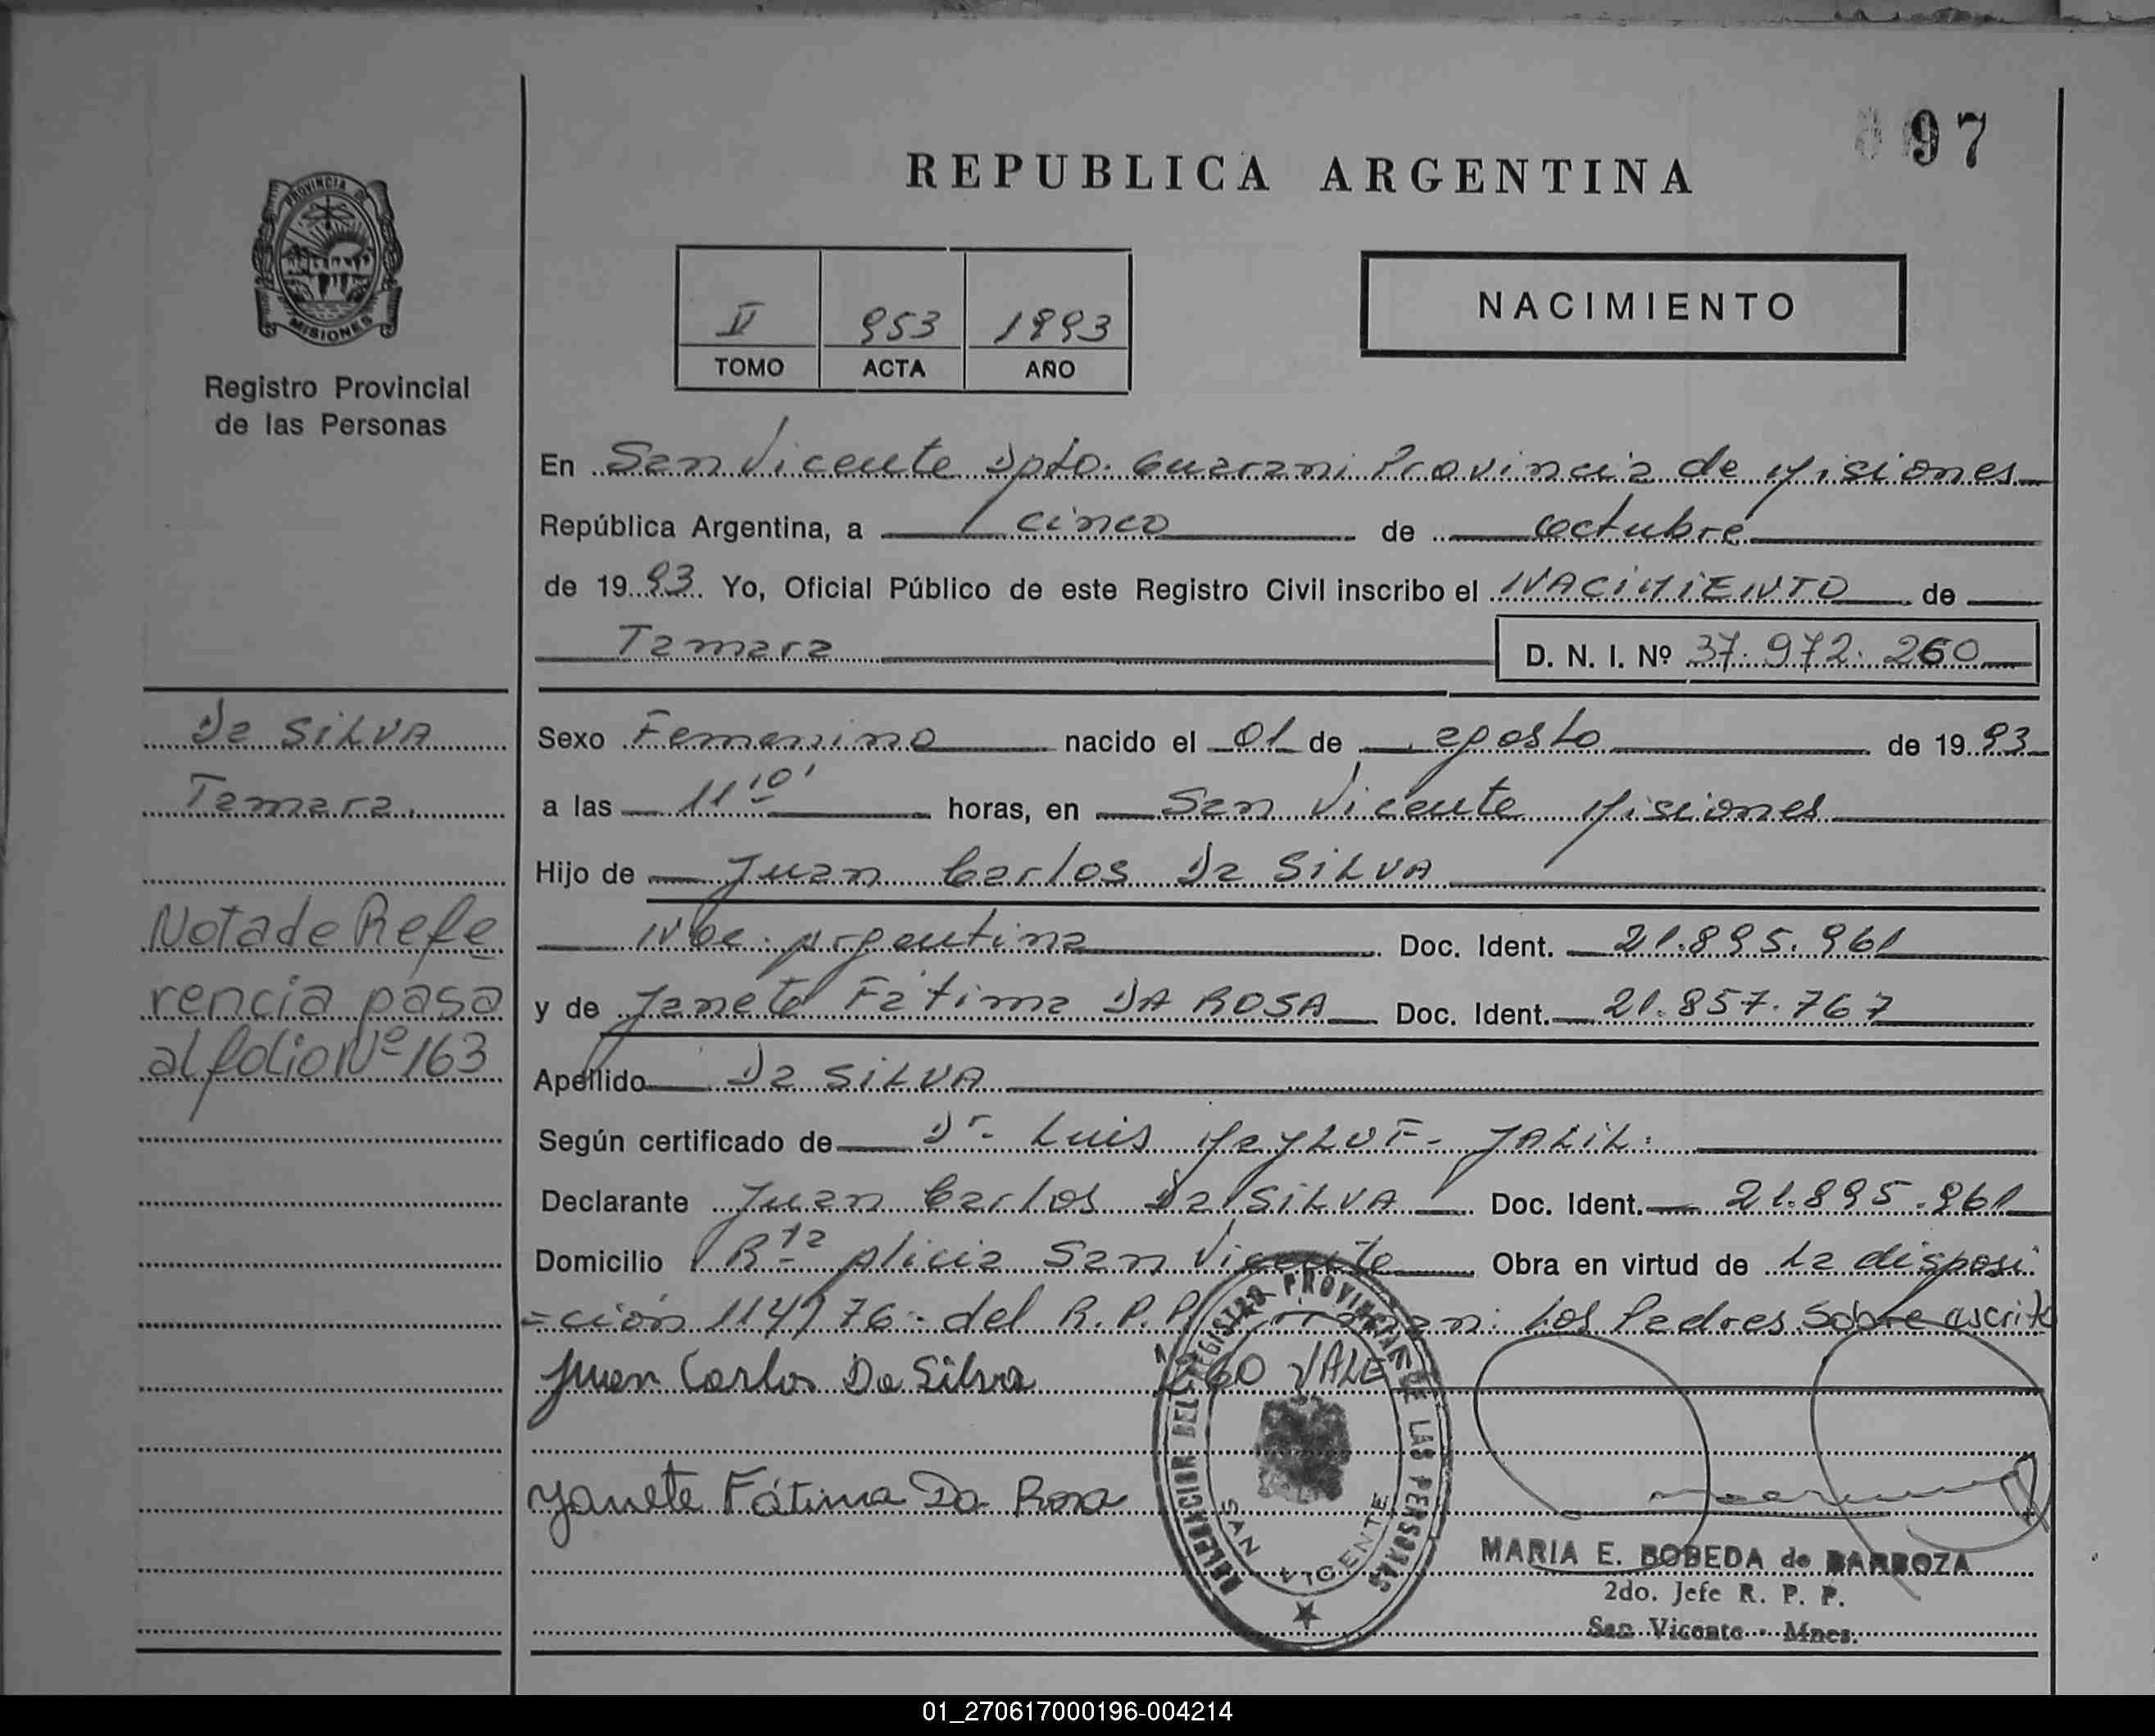 97
REPUBLICA ARGENTINA
PROVINCIA DE
MISIONES
Registro Provincial
de las Personas
V 953 1993
TOMO ACTA AÑO
NACIMIENTO
En San Vicente Dpto. Guarani Provincia de Misiones
República Argentina, a cinco de octubre
de 1993. Yo, Oficial Público de este Registro Civil inscribo el NACIMIENTO de
Tamara D. N. I. Nº 37.972.260
Da SILVA
Tamara.
Nota de Refe
rencia pasa
al folio Nº 163
Sexo Femenino nacido el 01 de agosto de 1993
a las 11 10' horas, en San Vicente Misiones
Hijo de Juan Carlos Da SILVA
Nac. Argentina Doc. Ident. 21.895.961
y de Janete Fátima DA ROSA Doc. Ident. 21.857.767
Apellido Da SILVA
Según certificado de Dr. Luis JALIL.
Declarante Juan Carlos Da SILVA Doc. Ident. 21.895.961
Domicilio Pta Alicia San Vicente Obra en virtud de La disposi
=ción 114/76 del R.P.P. Firman: Los Padres Sobre escrito
260 VALE
Juan Carlos Da Silva
Yanete Fátima Da Rosa
DELEGACION DEL REGISTRO PROVINCIAL DE LAS PERSONAS
SAN VICENTE
MARIA E. BOBEDA de BARBOZA
2do. Jefe R. P. P.
San Vicente - Mnes.
01_270617000196-004214